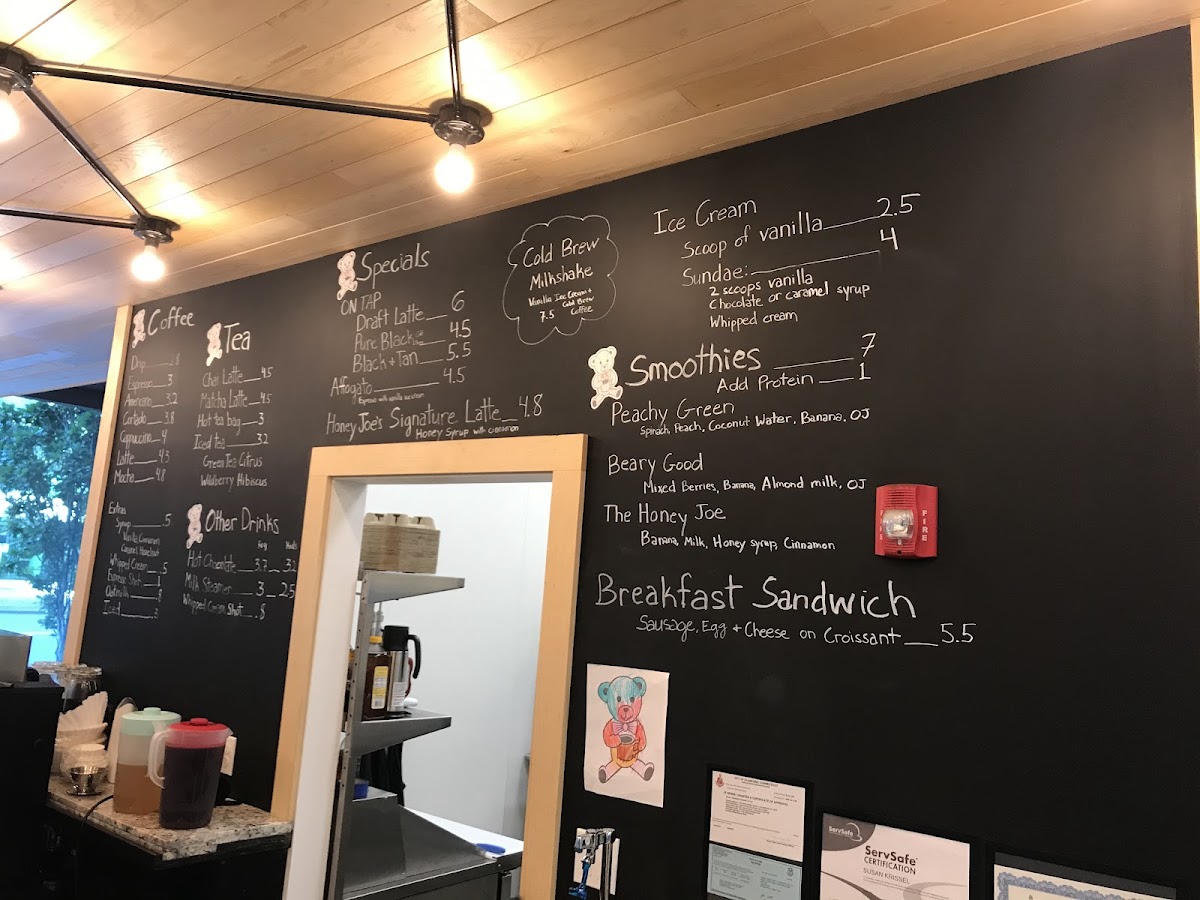 Coffee
Drip 2.8
Espresso 3
Americano 3.2
Cortado 3.8
Cappuccino 4
Latte 4.3
Mocha 4.8
Extras
Syrup .5
Vanilla Cinnamon
Caramel Hazelnut
Whipped Cream .5
Espresso Shot 1
Oatmilk .8
Iced
Tea
Chai Latte 4.5
Matcha Latte 4.5
Hot tea bag 3
Iced tea 3.2
Green Tea Citrus
Wildberry Hibiscus
Other Drinks
Reg Kids
Hot Chocolate 3.7 3.2
Milk Steamer 3 2.5
Whipped Cream Shot .8
Specials
ON TAP
Draft Latte 6
Pure Black 4.5
Black + Tan 5.5
Affogato 4.5
Espresso with vanilla ice cream
Honey Joe's Signature Latte 4.8
Honey Syrup with cinnamon
Cold Brew
Milkshake
Vanilla Ice Cream +
Cold Brew
7.5 Coffee
Ice Cream
Scoop of vanilla 2.5
Sundae: 4
2 scoops vanilla
Chocolate or caramel syrup
Whipped cream
Smoothies 7
Add Protein 1
Peachy Green
Spinach, Peach, Coconut Water, Banana, OJ
Beary Good
Mixed Berries, Banana, Almond milk, OJ
The Honey Joe
Banana, Milk, Honey syrup, Cinnamon
Breakfast Sandwich
Sausage, Egg + Cheese on Croissant 5.5
FIRE
ServSafe
ServSafe
CERTIFICATION
SUSAN KRISSEL